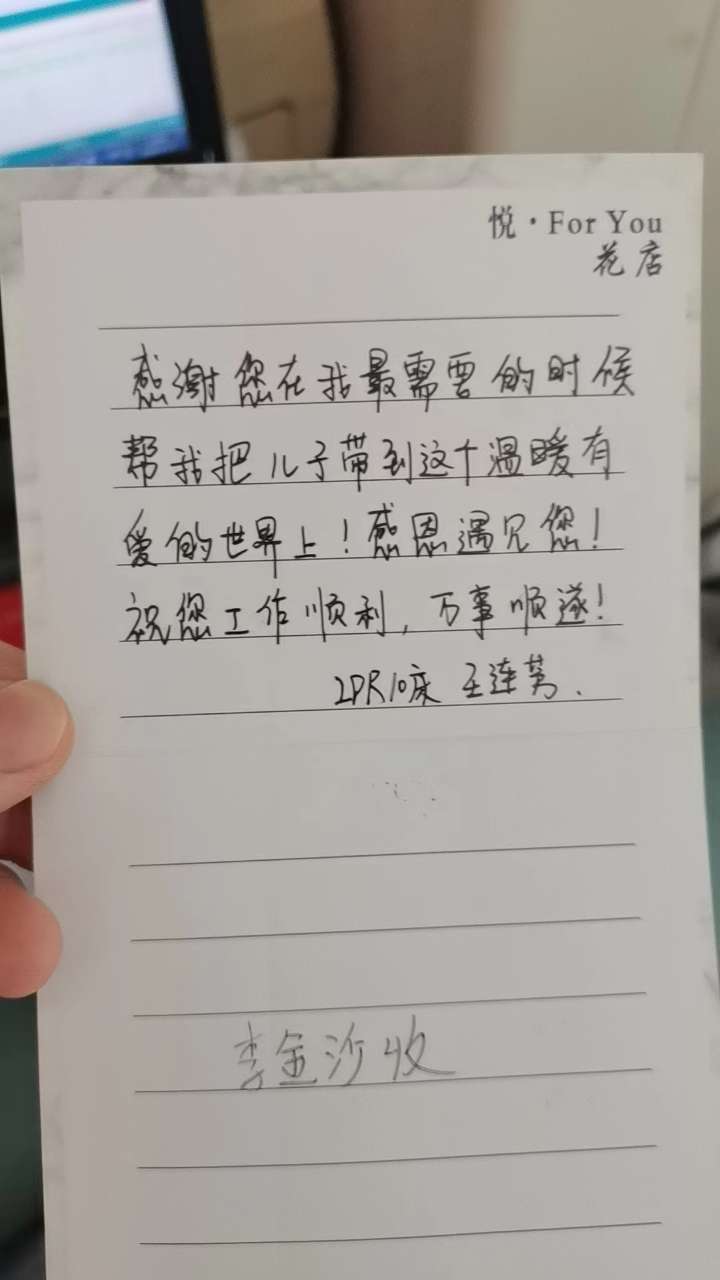 悦·For You
花店
感谢您在我最需要的时候
帮我把儿子带到这个温暖有
爱的世界上！感恩遇见您！
祝您工作顺利，万事顺遂！
LDR10床 王连芳.
李金沙收